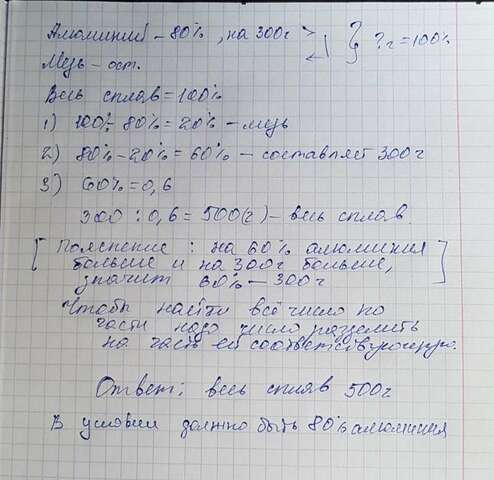 Алюминий – 80%, на 300г > } ?г = 100%
Медь – ост.
Весь сплав = 100%
1) 100% - 80% = 20% – медь
2) 80% - 20% = 60% – составляет 300г
3) 60% = 0,6
300 : 0,6 = 500(г) – весь сплав
[Пояснение: на 60% алюминия
больше и на 300г больше,
значит 60% – 300г]
Чтобы найти всё число по
части надо число разделить
на часть ей соответствующую.
Ответ: весь сплав 500г
В условии должно быть 80% алюминия